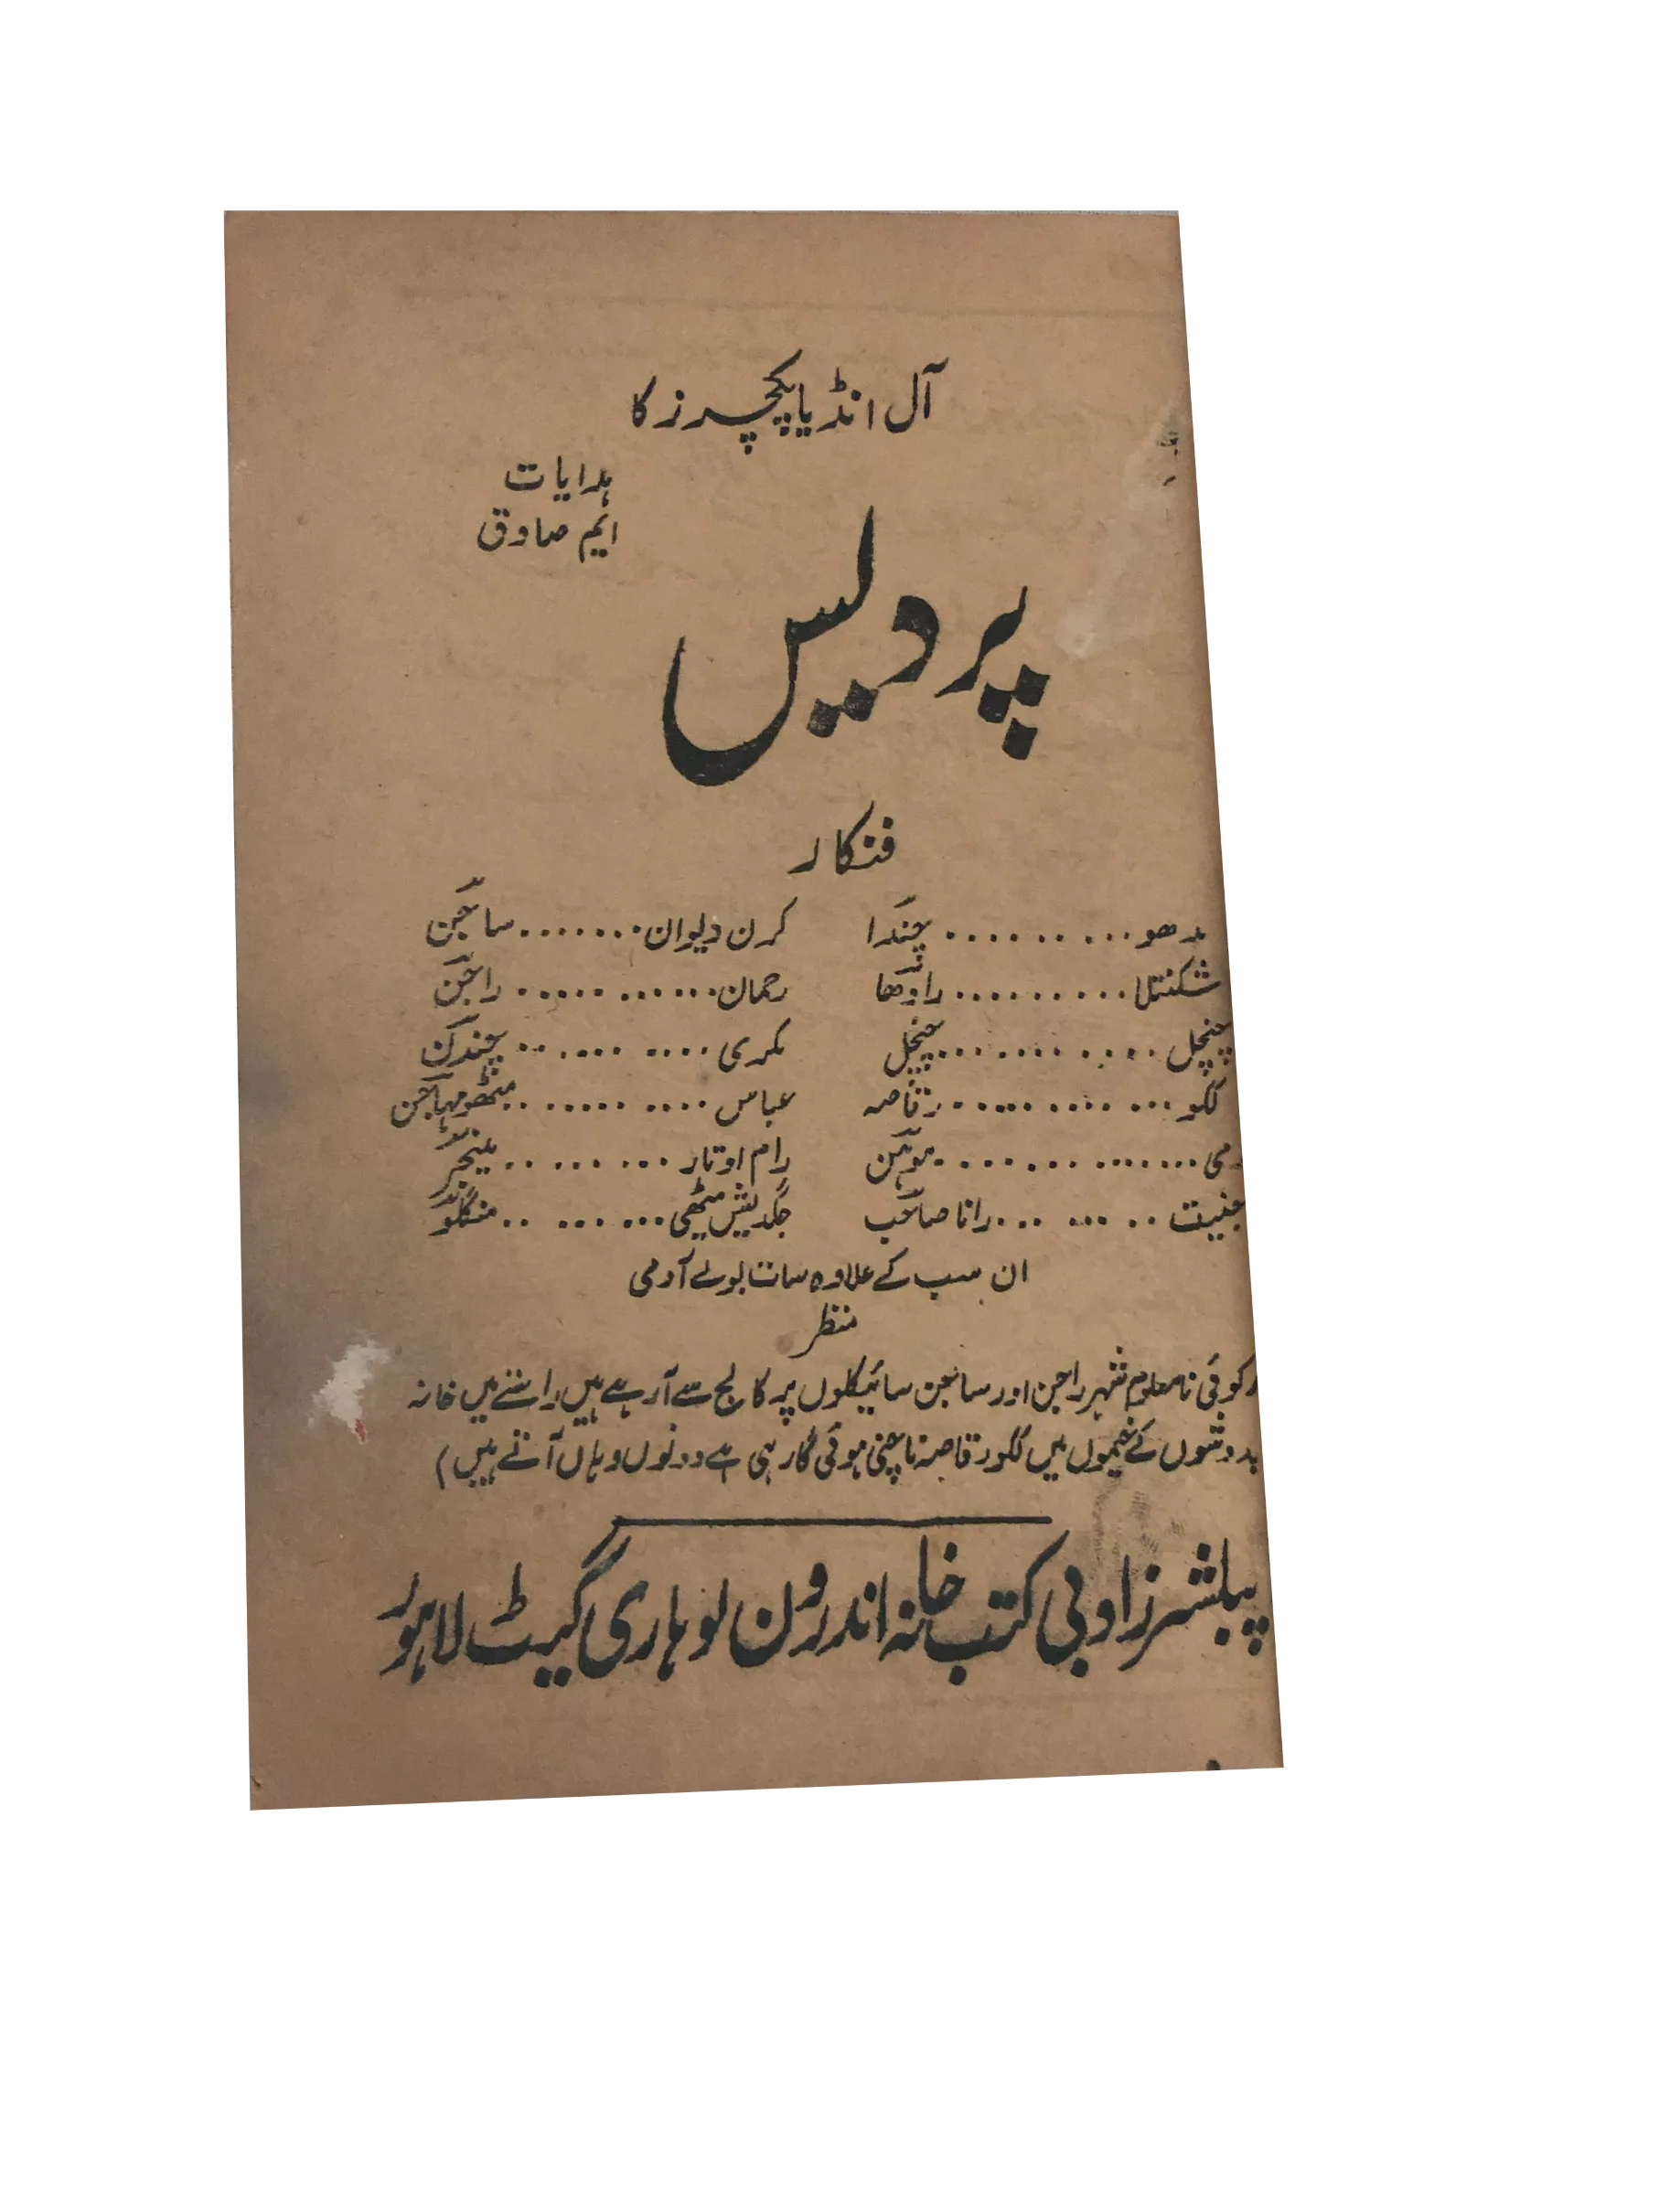 آل انڈیا پکچرز کا
ہدایات
ایم صادق
پردیس
فنکار
مدھو .......... چندا کرن دیوان ....... ساجن
شکنتلا ......... رادھا رحمان ........... راجن
چنچل ........... چنچل مکری ........... چندن
لکو ............ رقاصہ عباس ............ مٹھو مہاجن
می ............ موہن رام اوتار ......... مینجر
جنیت ......... رانا صاحب جگدیش سیٹھی ........ منگلو
ان سب کے علاوہ سات بولے آدمی
منظر
کوئی نامعلوم شہر راجن اور ساجن سائیکلوں پر کالج سے آرہے ہیں راستے میں خانہ
بدوشوں کے خیموں میں لکو رقاصہ ناچتی ہوئی گارہی ہے دونوں وہاں آتے ہیں)
پبلشرز ادبی کتب خانہ اندرون لوہاری گیٹ لاہور